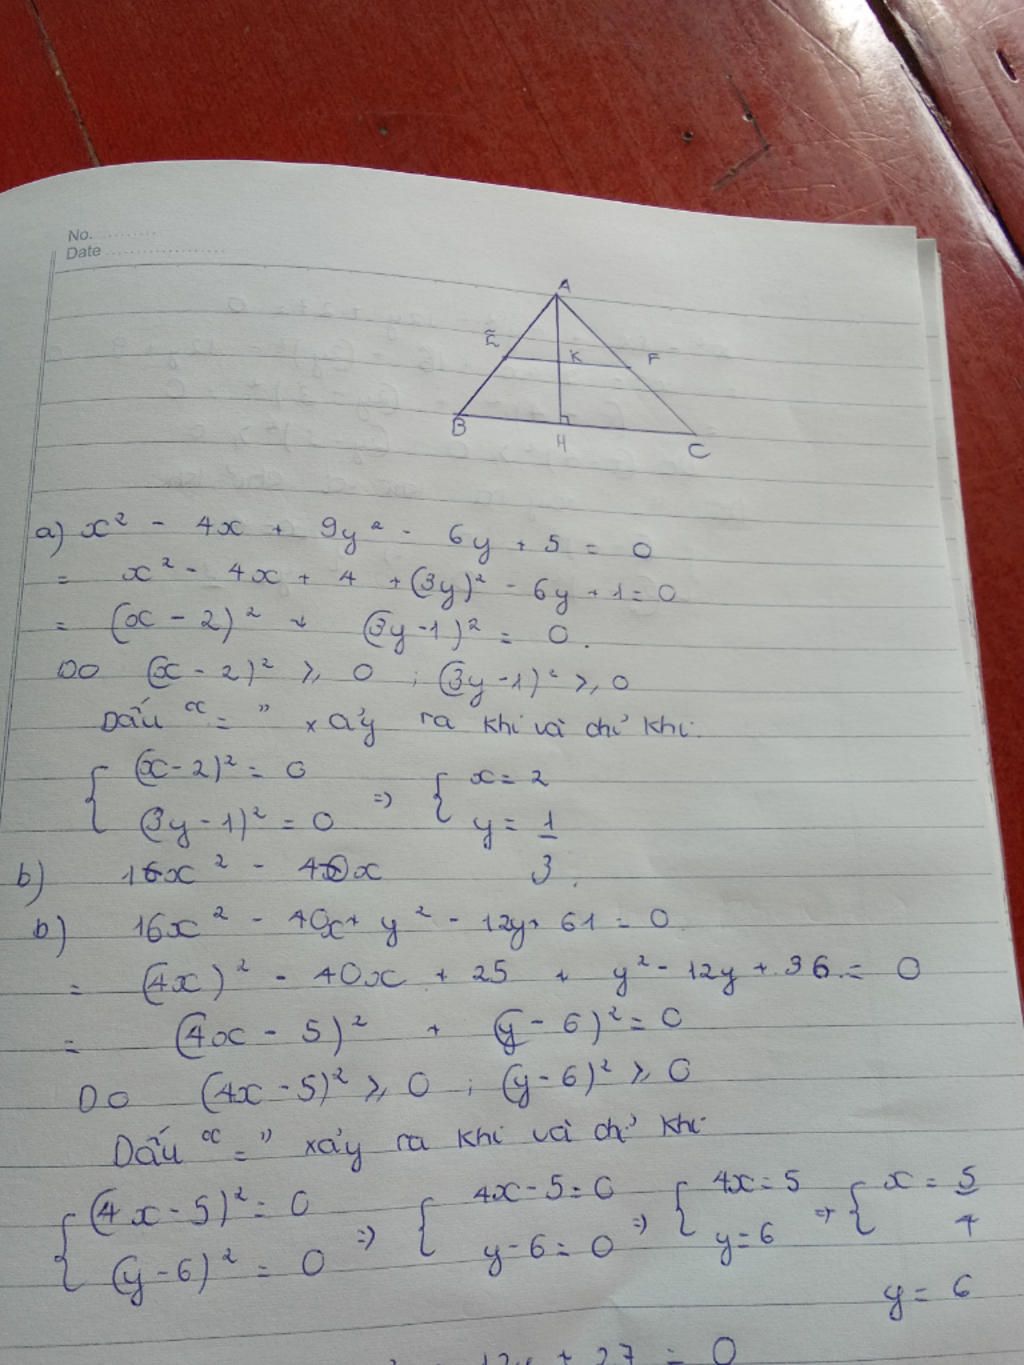 No. ..........
Date ....................
A
E
K
F
B
H
C
a) x² - 4x + 9y² - 6y + 5 = 0
= x² - 4x + 4 + (3y)² - 6y + 1 = 0
= (x - 2)² + (3y - 1)² = 0.
Do (x - 2)² ⩾ 0 ; (3y - 1)² ⩾ 0
Dấu " = " xảy ra khi và chỉ khi.
{ (x - 2)² = 0 => { x = 2
(3y - 1)² = 0 y = 1/3.
b) 16x² - 40x
b) 16x² - 40x + y² - 12y + 61 = 0
= (4x)² - 40x + 25 + y² - 12y + 36 = 0
= (4x - 5)² + (y - 6)² = 0
Do (4x - 5)² ⩾ 0 ; (y - 6)² ⩾ 0
Dấu " = " xảy ra khi và chỉ khi
{ (4x - 5)² = 0 => { 4x - 5 = 0 => { 4x = 5 => { x = 5/4
(y - 6)² = 0 y - 6 = 0 y = 6 y = 6
- 12y + 27 = 0